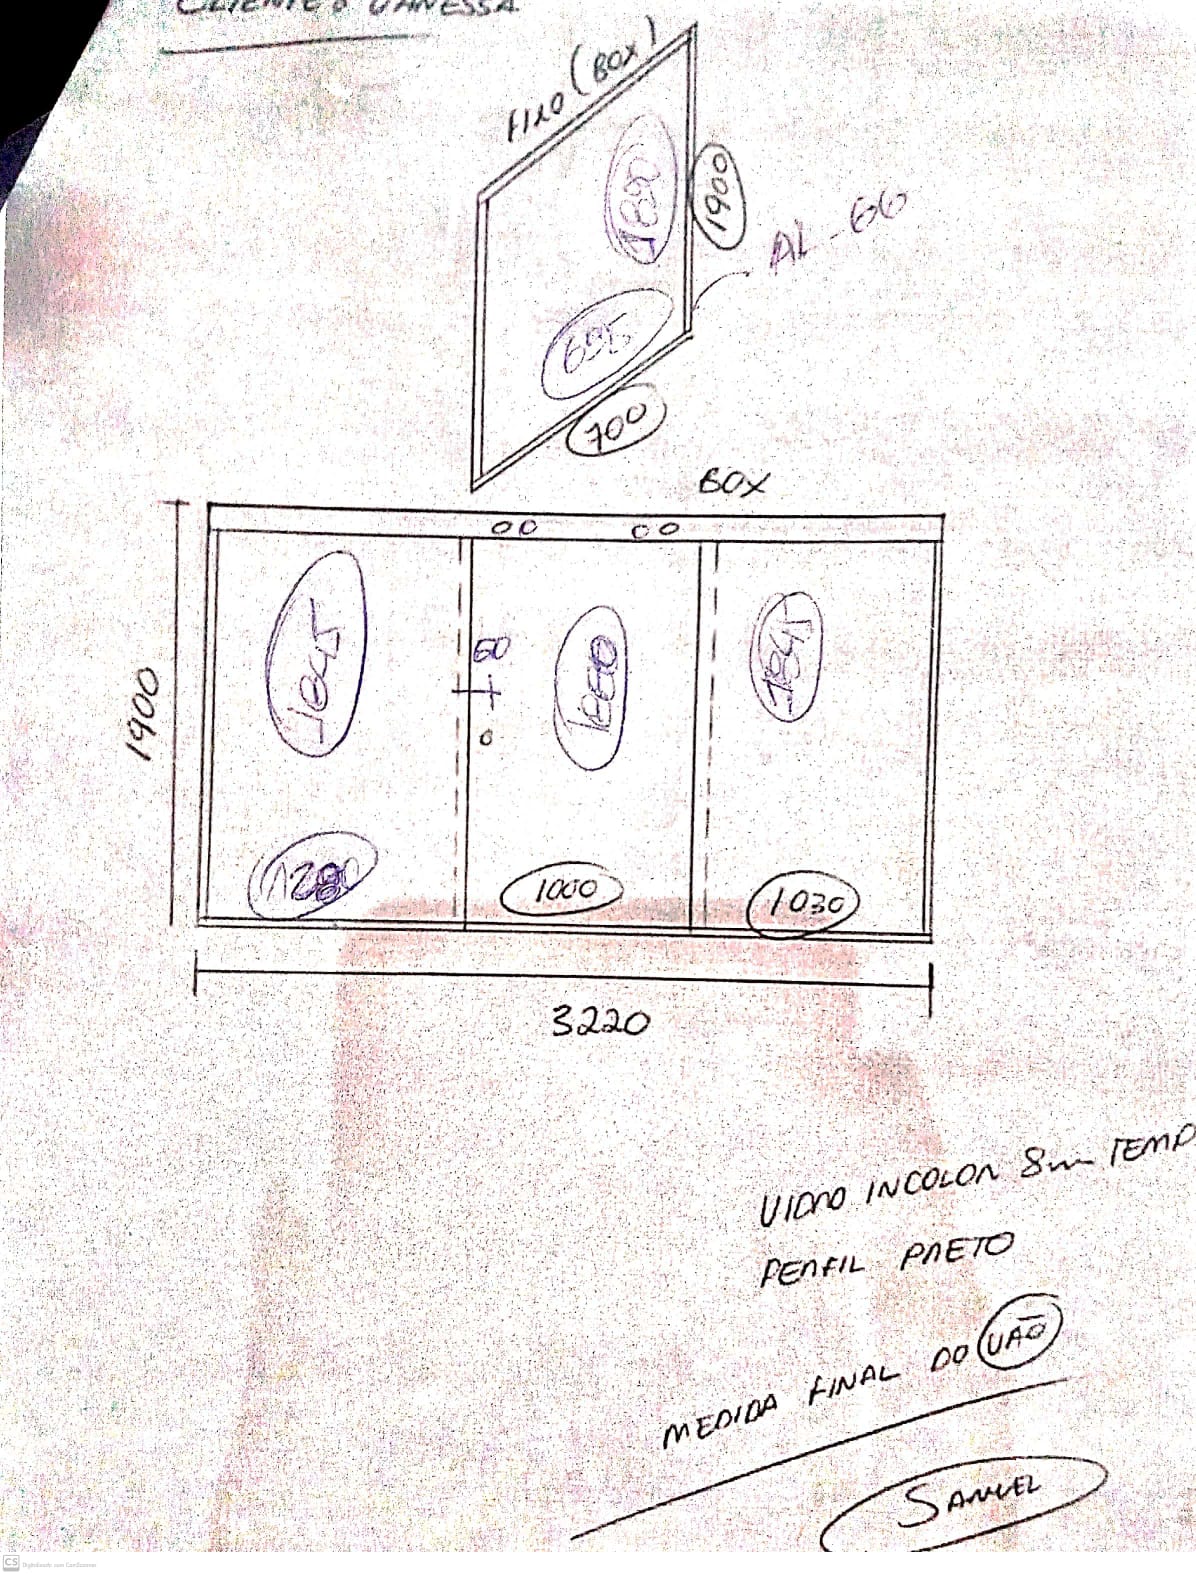 CLIENTE: VANESSA
FIXO (BOX)
1890
1900
AL-66
695
700
BOX
1845
50
1860
1845
1900
1280
1000
1030
3220
VIDRO INCOLOR 8mm TEMP
PERFIL PRETO
MEDIDA FINAL DO VÃO
SAMUEL
CS Digitalizado com CamScanner